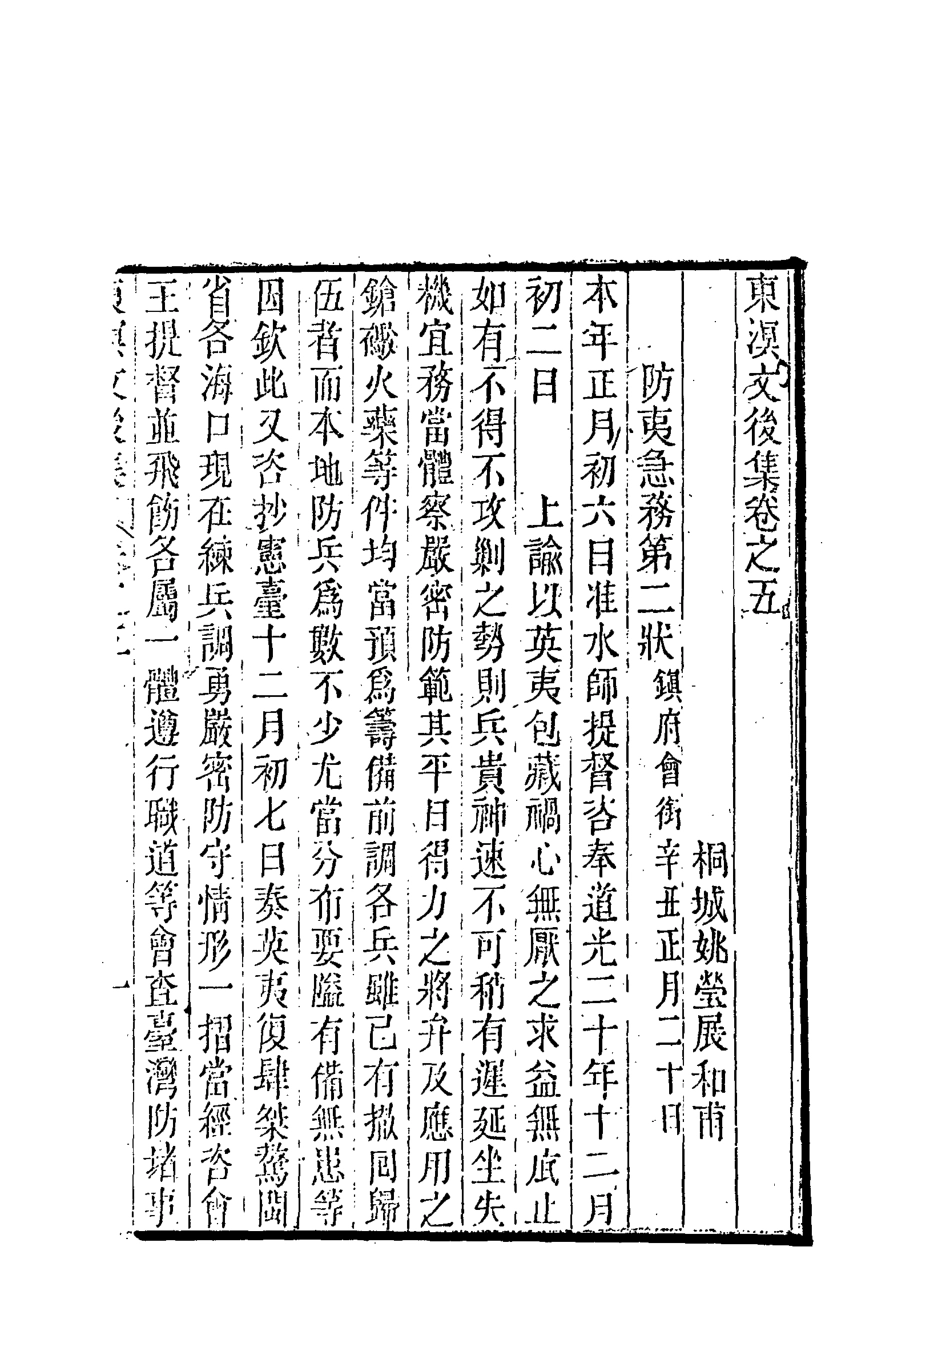 東溟文後集卷之五
桐城姚瑩展和甫
防夷急務第二狀 鎮府會銜辛丑正月二十日
本年正月初六日准水師提督咨奉道光二十年十二月
初二日　上諭以英夷包藏禍心無厭之求益無底止
如有不得不攻剿之勢則兵貴神速不可稍有遲延坐失
機宜務當體察嚴密防範其平日得力之將弁及應用之
鎗礮火藥等件均當預爲籌備前調各兵雖已有撤囘歸
伍者而本地防兵爲數不少尤當分布要隘有備無患等
因欽此又咨抄憲臺十二月初七日奏英夷復肆桀驁閩
省各海口現在練兵調勇嚴密防守情形一摺當經咨會
王提督並飛飭各屬一體遵行職道等會查臺灣防堵事
東溟文後集 卷之五 一